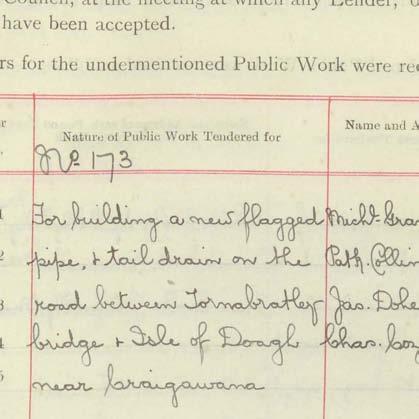 Council, at the meeting at which any Lender,
have been accepted.
rs for the undermentioned Public Work were rec
Nature of Public Work Tendered for
Name and A
No 173
1 For building a new flagged Michl. Gra
2 pipe, & tail drain on the Patk. Collin
3 road between Tornabratley Jas. Dohe
4 bridge & Isle of Doagh Chas. Coy
5 near Craigawana